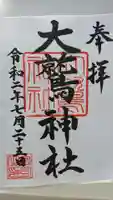 奉拝
大鷲神社
令和二年七月二十五日